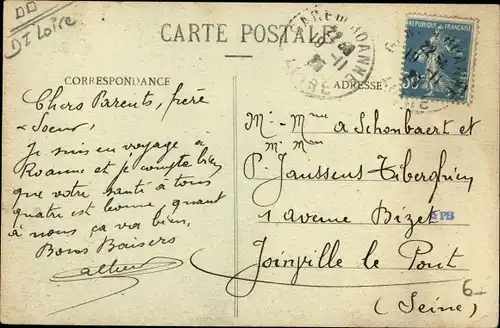 DI Loire
CARTE POSTALE
GARE DE ROANNE
LOIRE
REPUBLIQUE FRANÇAISE
50
CORRESPONDANCE
ADRESSE
Chers Parents, frère
& Soeur,
Je suis en voyage à
Roanne et je compte bien
que votre santé à tous
quatre est bonne, quant
à nous ça va bien,
Bons Baisers
Mr. Mme A Schonbaert et
Mr Mme
P. Janssens Tiberghien
1 avenue Bizet
EPB
Joinville le Pont
(Seine)
6-